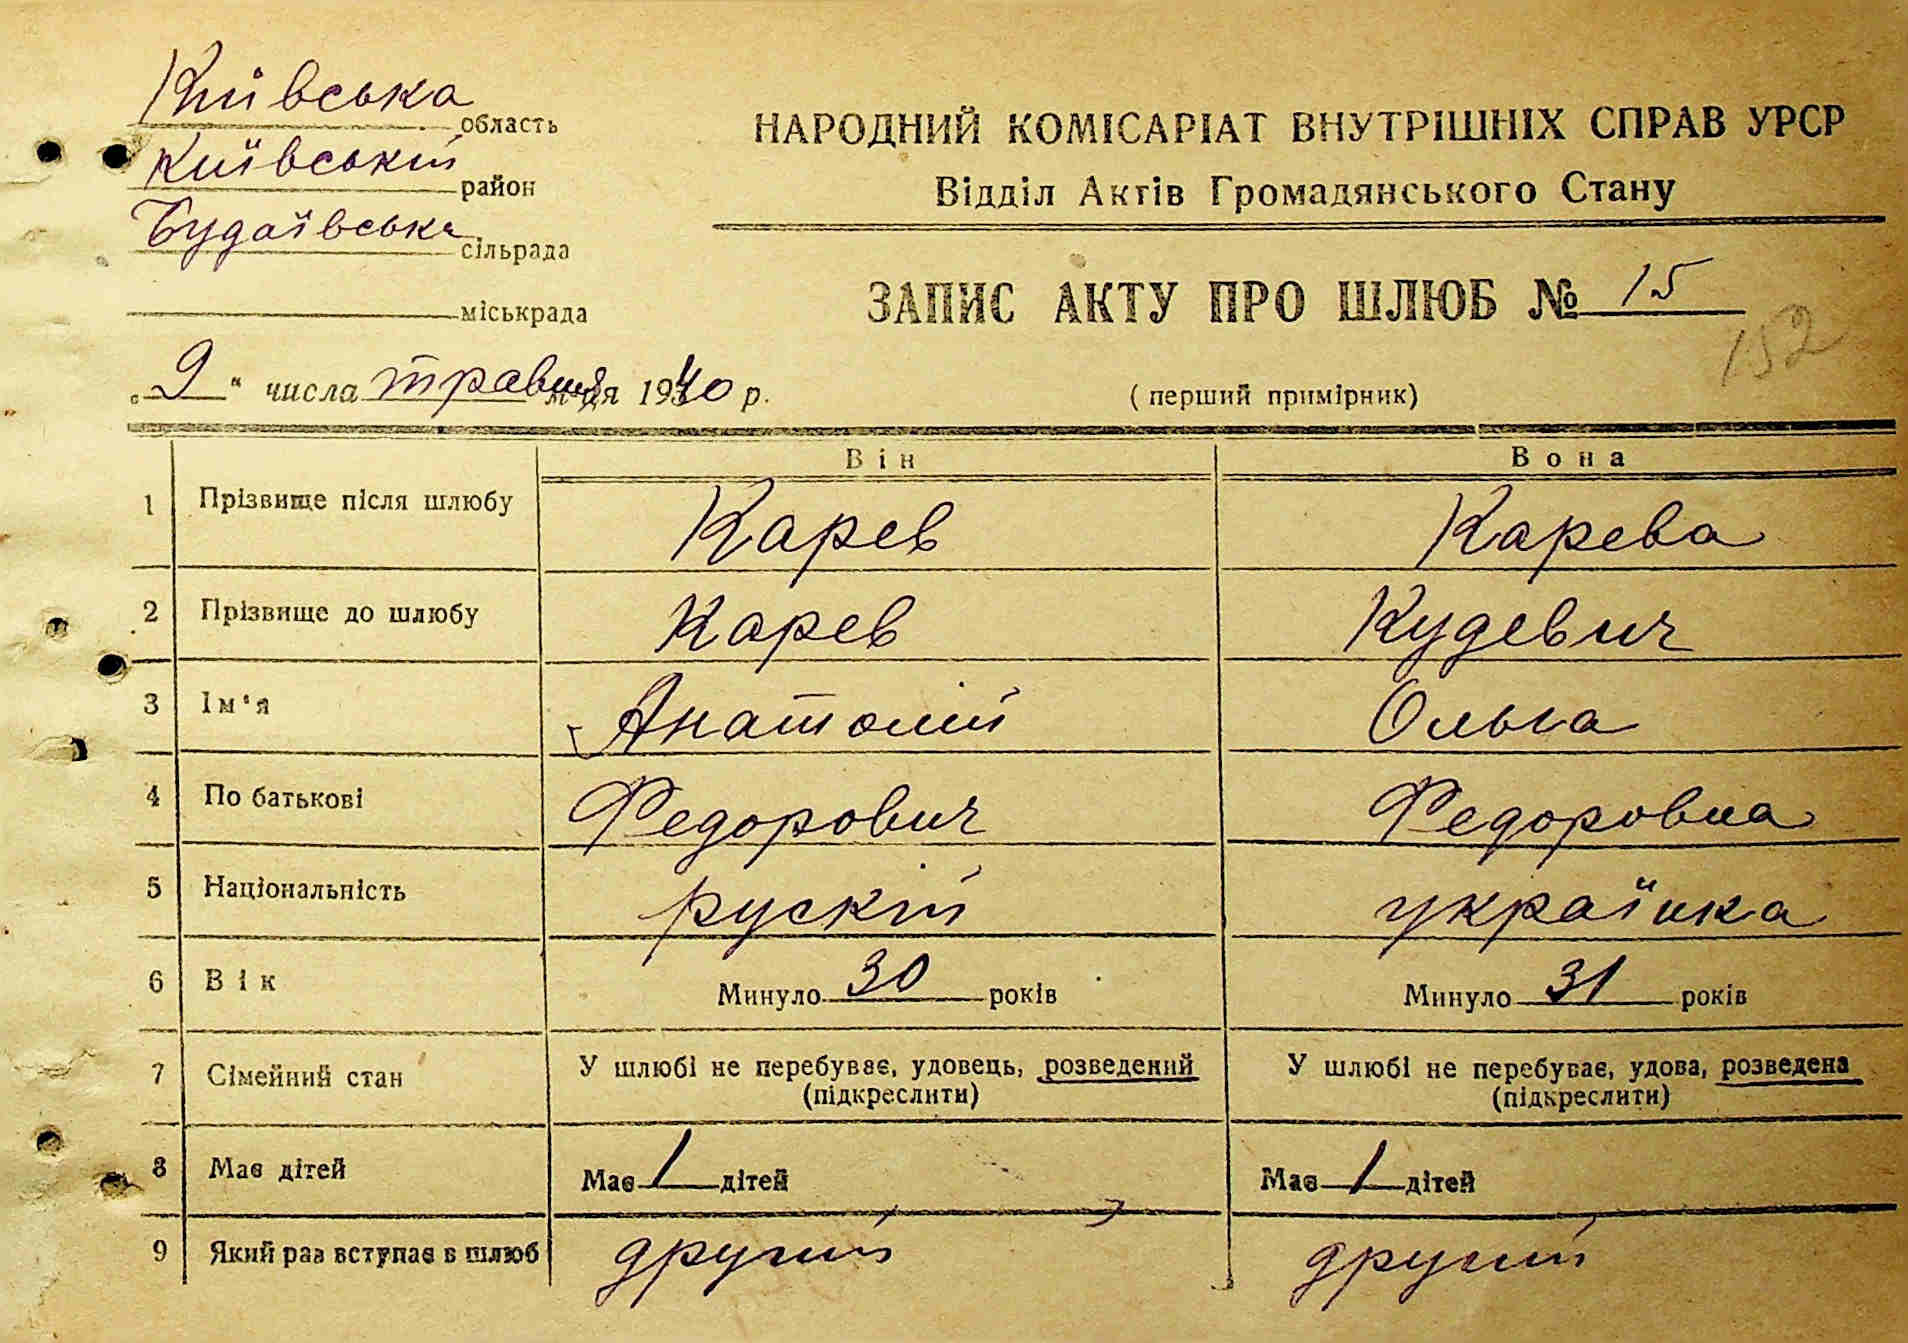 Київська область
Київський район
Будаївська сільрада
міськрада
НАРОДНИЙ КОМІСАРІАТ ВНУТРІШНІХ СПРАВ УРСР
Відділ Актів Громадянського Стану
ЗАПИС АКТУ ПРО ШЛЮБ № 15
152
„9“ числа травня м-ця 1940 р.
(перший примірник)
Він Вона
1 Прізвище після шлюбу Карев Карева
2 Прізвище до шлюбу Карев Кудевич
3 Ім'я Анатолій Ольга
4 По батькові Федорович Федоровна
5 Національність рускій українка
6 Вік Минуло 30 років Минуло 31 років
7 Сімейний стан У шлюбі не перебуває, удовець, розведений (підкреслити) У шлюбі не перебуває, удова, розведена (підкреслити)
8 Має дітей Має 1 дітей Має 1 дітей
9 Який раз вступає в шлюб другий другий